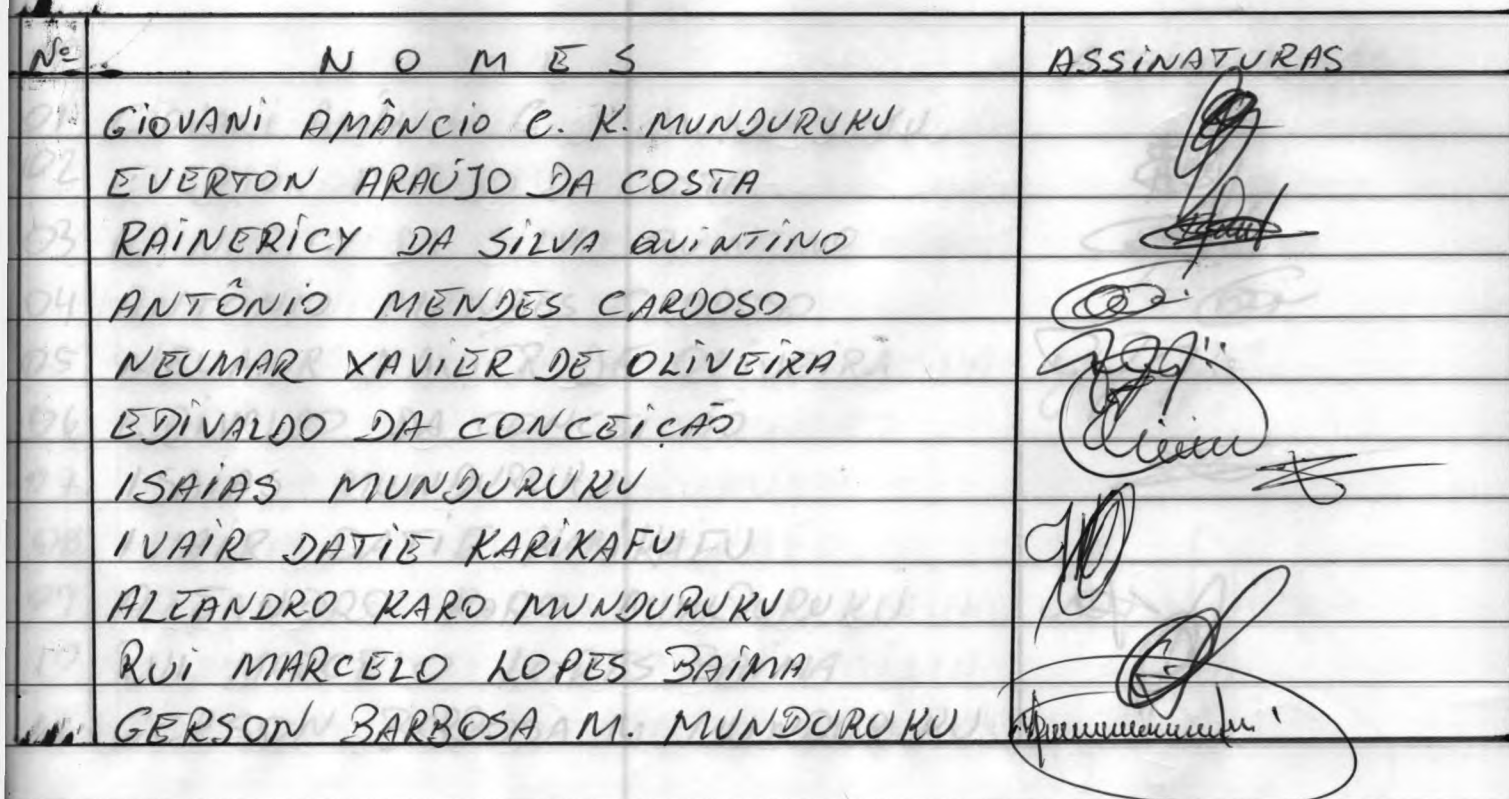 Nº NOMES ASSINATURAS
01 GIOVANI AMÂNCIO C. K. MUNDURUKU
02 EVERTON ARAÚJO DA COSTA
03 RAINERICY DA SILVA QUINTINO
04 ANTÔNIO MENDES CARDOSO
05 NEUMAR XAVIER DE OLIVEIRA
06 EDIVALDO DA CONCEICÃO
07 ISAIAS MUNDURUKU
08 IVAIR DATIE KARIKAFU
09 ALEANDRO KARO MUNDURUKU
10 RUI MARCELO LOPES BAIMA
GERSON BARBOSA M. MUNDURUKU